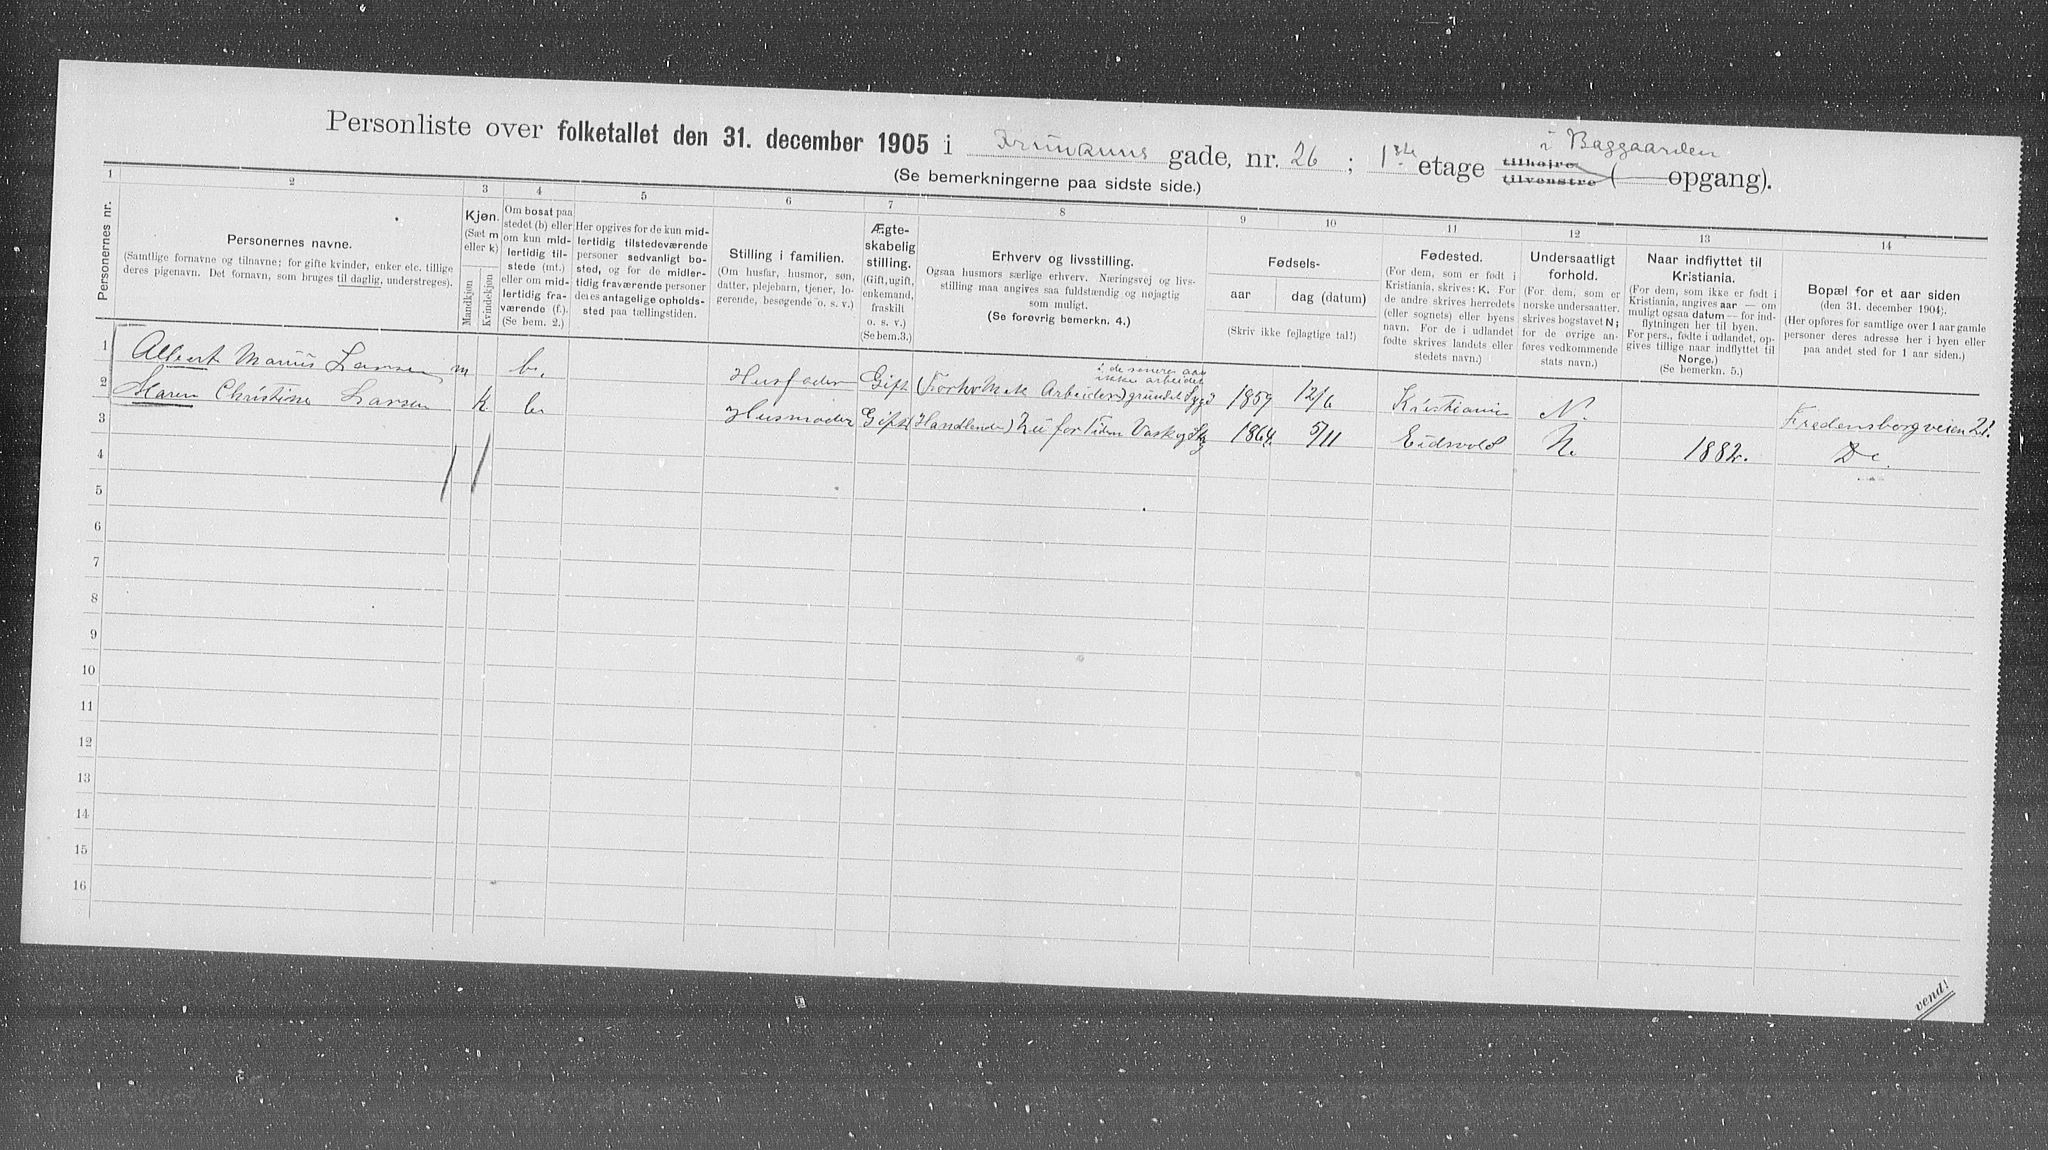 i Baggaarden
Personliste over folketallet den 31. december 1905 i gade, nr. 26 ; 1ste etage tilhøjre tilvenstre ( — opgang).
(Se bemerkningerne paa sidste side.)
1 2 3 4 5 6 7 8 9 10 11 12 13 14
Personernes nr.
Personernes navne.
(Samtlige fornavne og tilnavne; for gifte kvinder, enker etc. tillige
deres pigenavn. Det fornavn, som bruges til daglig, understreges).
Kjøn.
(Sæt m
eller k)
Mandkjøn
Kvindekjøn
Om bosat paa
stedet (b) eller
om kun mid-
lertidig til-
stede (mt.)
eller om mid-
lertidig fra-
værende (f.).
(Se bem. 2.)
Her opgives for de kun mid-
lertidig tilstedeværende
personer sedvanligt bo-
sted, og for de midler-
tidig fraværende personer
deres antagelige opholds-
sted paa tællingstiden.
Stilling i familien.
(Om husfar, husmor, søn,
datter, plejebarn, tjener, lo-
gerende, besøgende o. s. v.)
Ægte-
skabelig
stilling.
(Gift, ugift,
enkemand,
fraskilt
o. s. v.)
(Se bem.3.)
Erhverv og livsstilling.
Ogsaa husmors særlige erhverv. Næringsvej og livs-
stilling maa angives saa fuldstændig og nøjagtig
som muligt.
(Se forøvrig bemerkn. 4.)
Fødsels-
aar dag (datum)
(Skriv ikke fejlagtige tal!)
Fødested.
(For dem, som er født i
Kristiania, skrives: K. For
de andre skrives herredets
(eller sognets) eller byens
navn. For de i udlandet
fødte skrives landets eller
stedets navn.)
Undersaatligt
forhold.
(For dem, som er
norske undersaatter,
skrives bogstavet N;
for de øvrige an-
føres vedkommende
stats navn.)
Naar indflyttet til
Kristiania.
(For dem, som ikke er født i
Kristiania, angives aar — om
muligt ogsaa datum — for ind-
flytningen her til byen.
For pers., fødte i udlandet, op-
gives tillige naar indflyttet til
Norge.)
(Se bemerkn. 5.)
Bopæl for et aar siden
(den 31. december 1904).
(Her opføres for samtlige over 1 aar gamle
personer deres adresse her i byen eller
paa andet sted for 1 aar siden.)
i de senere aar
ikke arbeidet
1 Albert Marius Larsen m b. Husfader Gift Arbeider) grundet Sygd 1859 12/6 Kristiania N. Fredensborgveien 21.
2 Maren Christine Larsen k b Husmoder Gift (Handlende) nu for Tiden 1864. 5/11 Eidsvold N. 1882. Do.
3
4
5
6
7
8
9
10
11
12
13
14
15
16
vend!